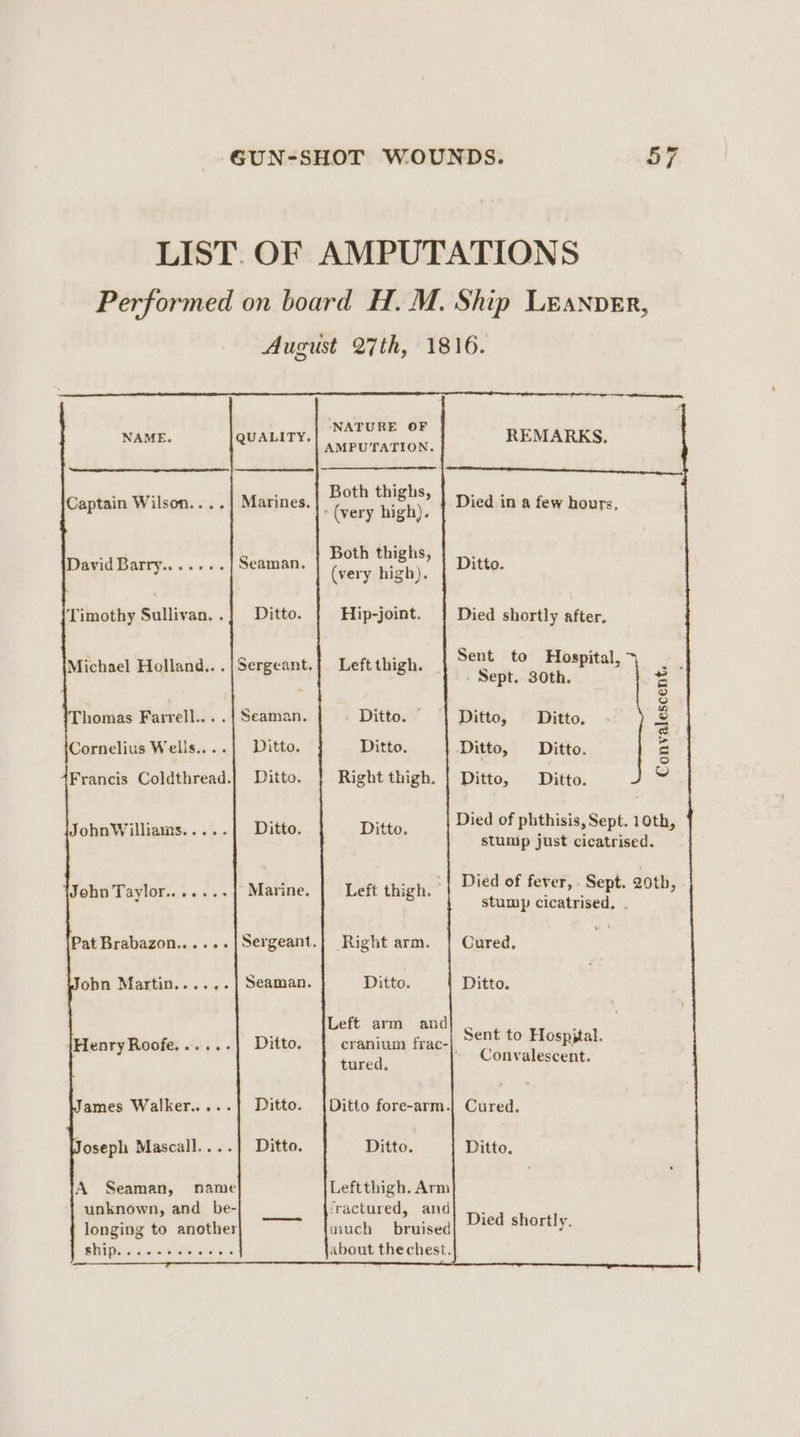 GUN-SHOT WOUNDS. 57
LIST OF AMPUTATIONS
Performed on board H. M. Ship LEANDER,
August 27th, 1816.
NAME. QUALITY. NATURE OF AMPUTATION. REMARKS.
Captain Wilson.... Marines. Both thighs, (very high). Died in a few hours.
David Barry....... Seaman. Both thighs, (very high). Ditto.
Timothy Sullivan.. Ditto. Hip-joint. Died shortly after.
Michael Holland... Sergeant. Left thigh. Sent to Hospital, Sept. 30th.
Thomas Farrell.... Seaman. Ditto. Ditto, Ditto.
Cornelius Wells.... Ditto. Ditto. Ditto, Ditto.
Francis Coldthread. Ditto. Right thigh. Ditto, Ditto.
Convalescent.
John Williams..... Ditto. Ditto. Died of phthisis, Sept. 10th, stump just cicatrised.
John Taylor....... Marine. Left thigh. Died of fever, Sept. 20th, stump cicatrised.
Pat Brabazon...... Sergeant. Right arm. Cured.
John Martin...... Seaman. Ditto. Ditto.
Henry Roofe...... Ditto. Left arm and cranium fractured. Sent to Hospital. Convalescent.
James Walker..... Ditto. Ditto fore-arm. Cured.
Joseph Mascall.... Ditto. Ditto. Ditto.
A Seaman, name unknown, and belonging to another ship............ —— Left thigh. Arm fractured, and much bruised about the chest. Died shortly.